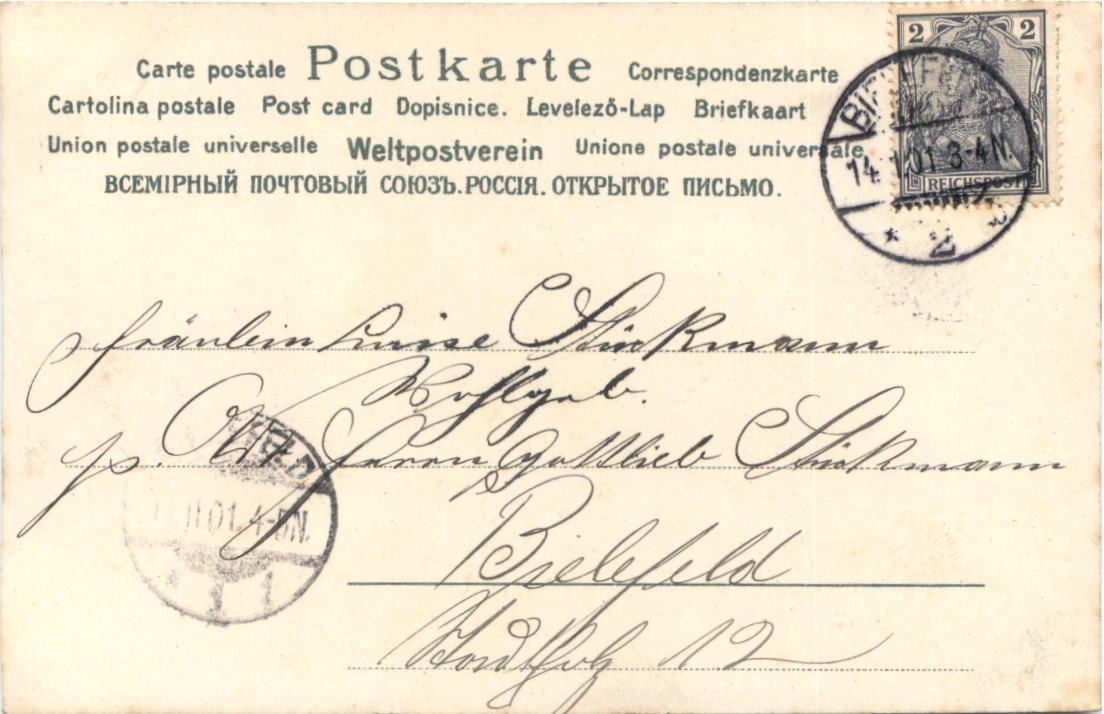 Carte postale Postkarte Correspondenzkarte
Cartolina postale Post card Dopisnice. Levelező-Lap Briefkaart
Union postale universelle Weltpostverein Unione postale universale
ВСЕМІРНЫЙ ПОЧТОВЫЙ СОЮЗЪ. РОССІЯ. ОТКРЫТОЕ ПИСЬМО.
2 2
REICHSPOST
14. 01 3-4N.
* 2
Fräulein Luise Stückmann
Wohlgeb.
p. Adr. Herrn Gottlieb Stückmann
01. 4-5N.
* 1
Bielefeld
12